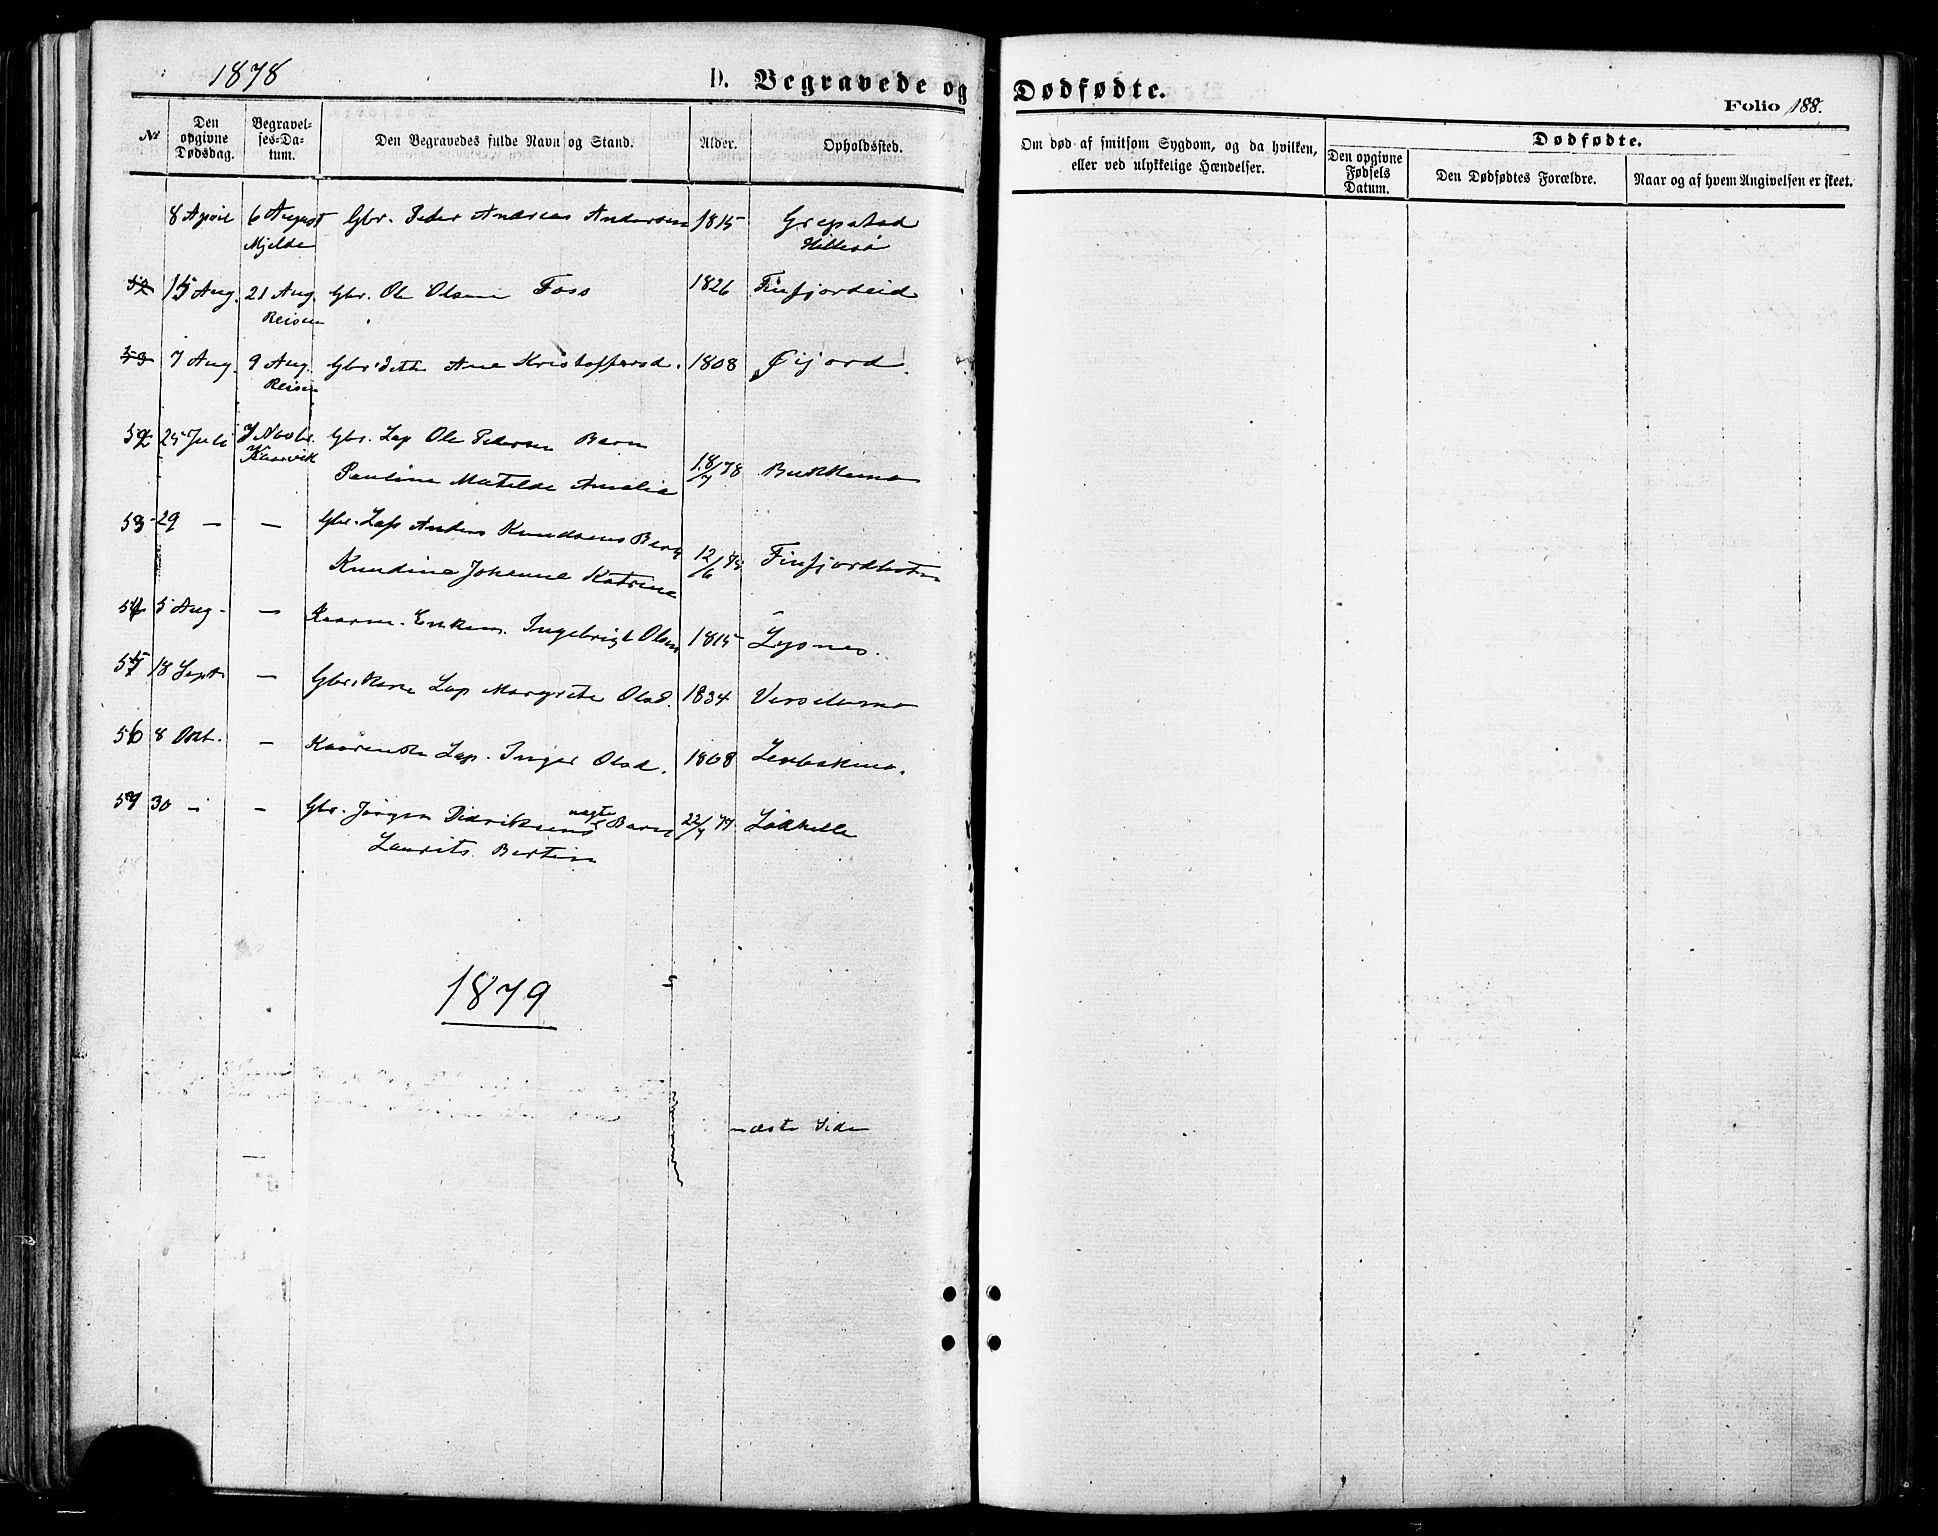 1878
D. Begravede og Dødfødte.
Folio 188.
No
Den opgivne Dødsdag.
Begravelses-Datum.
Den Begravedes fulde Navn og Stand.
Alder.
Opholdssted.
Om død af smitsom Sygdom, og da hvilken, eller ved ulykkelige Hændelser.
Dødfødte.
Den opgivne Fødsels Datum.
Den Dødfødtes Forældre.
Naar og af hvem Angivelsen er skeet.
8 April 6 August Gbr. Peder Andreas Andersen 1815 Grepstad
Mjelde Hillesø
52 15 Aug. 21 Aug. Gbr. Ole Olsen Foss 1826 Finfjordeid
Reisen
53 7 Aug. 9 Aug. Gbr Ane Kristoffersd. 1808 Øijord
Reisen
52 25 Juli 3 Novbr. Gbr. Lap Ole Pedersen Barn
Kaarvik Pauline Matilde Amalie 18/7 78 Bukkemo
53 29 — — Gbr. Lap Anders Knudsens Barn
Knudine Johanne Katrine 12/6 78 Finfjordbotn
54 5 Aug. — Kaarm. Enkem. Ingebrigt Olsen 1815 Lysnes.
55 18 Sept — Gbrskone Lap Margrete Olsd. 1834
56 8 Okt. — Lap. Inger Olsd. 1808
57 30 — — Gbr. Jørgen Didriksens ægte Barn 22/7 77 Løkhelle
Laurits Bertin
1879
næste Side